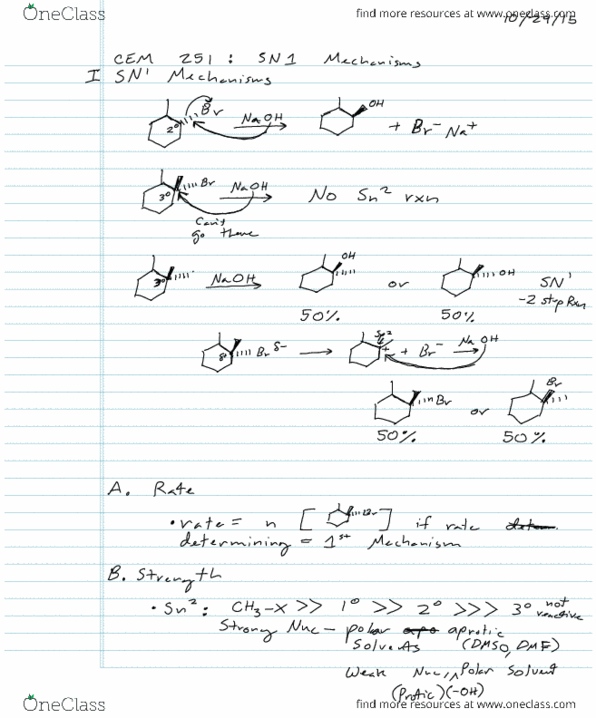 OneClass
find more resources at www.oneclass.com
10/29/15
CEM 251 : SN1 Mechanisms
I SN' Mechanisms
2° Br NaOH OH + Br⁻ Na⁺
3° Br NaOH No Sn² rxn
Can't
go there
3° NaOH OH or OH SN'
50% 50% -2 step Rxn
Br δ- + Br⁻ NaOH
Br or Br
50% 50%
A. Rate
• rate = n [ Br ] if rate
determining = 1st Mechanism
B. Strength
• Sn²: CH₃-X >> 1° >> 2° >>> 3° not reactive
Strong Nuc - polar aprotic
Solvents (DMSO, DMF)
Weak Nuc, Polar Solvent
(Protic)(-OH)
OneClass
find more resources at www.oneclass.com